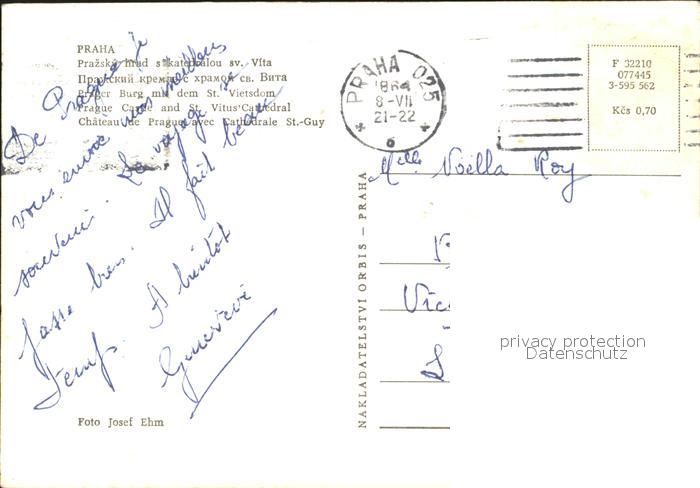 PRAHA
Pražský hrad s katedrálou sv. Víta
Пражский кремль с храмом св. Вита
Prager Burg mit dem St. Vietsdom
Prague Castle and St. Vitus' Cathedral
Château de Prague avec Cathédrale St.-Guy
De Prague je
vous envoie mes meilleurs
souvenirs. Le voyage se
passe bien. Il fait beau
Temps. A bientôt
Geneviève
Foto Josef Ehm
NAKLADATELSTVÍ ORBIS – PRAHA
PRAHA 025
1964
8-VII
21-22
F 32210
077445
3-595 562
Kčs 0,70
Melle Noëlla Roy
Vic
privacy protection
Datenschutz